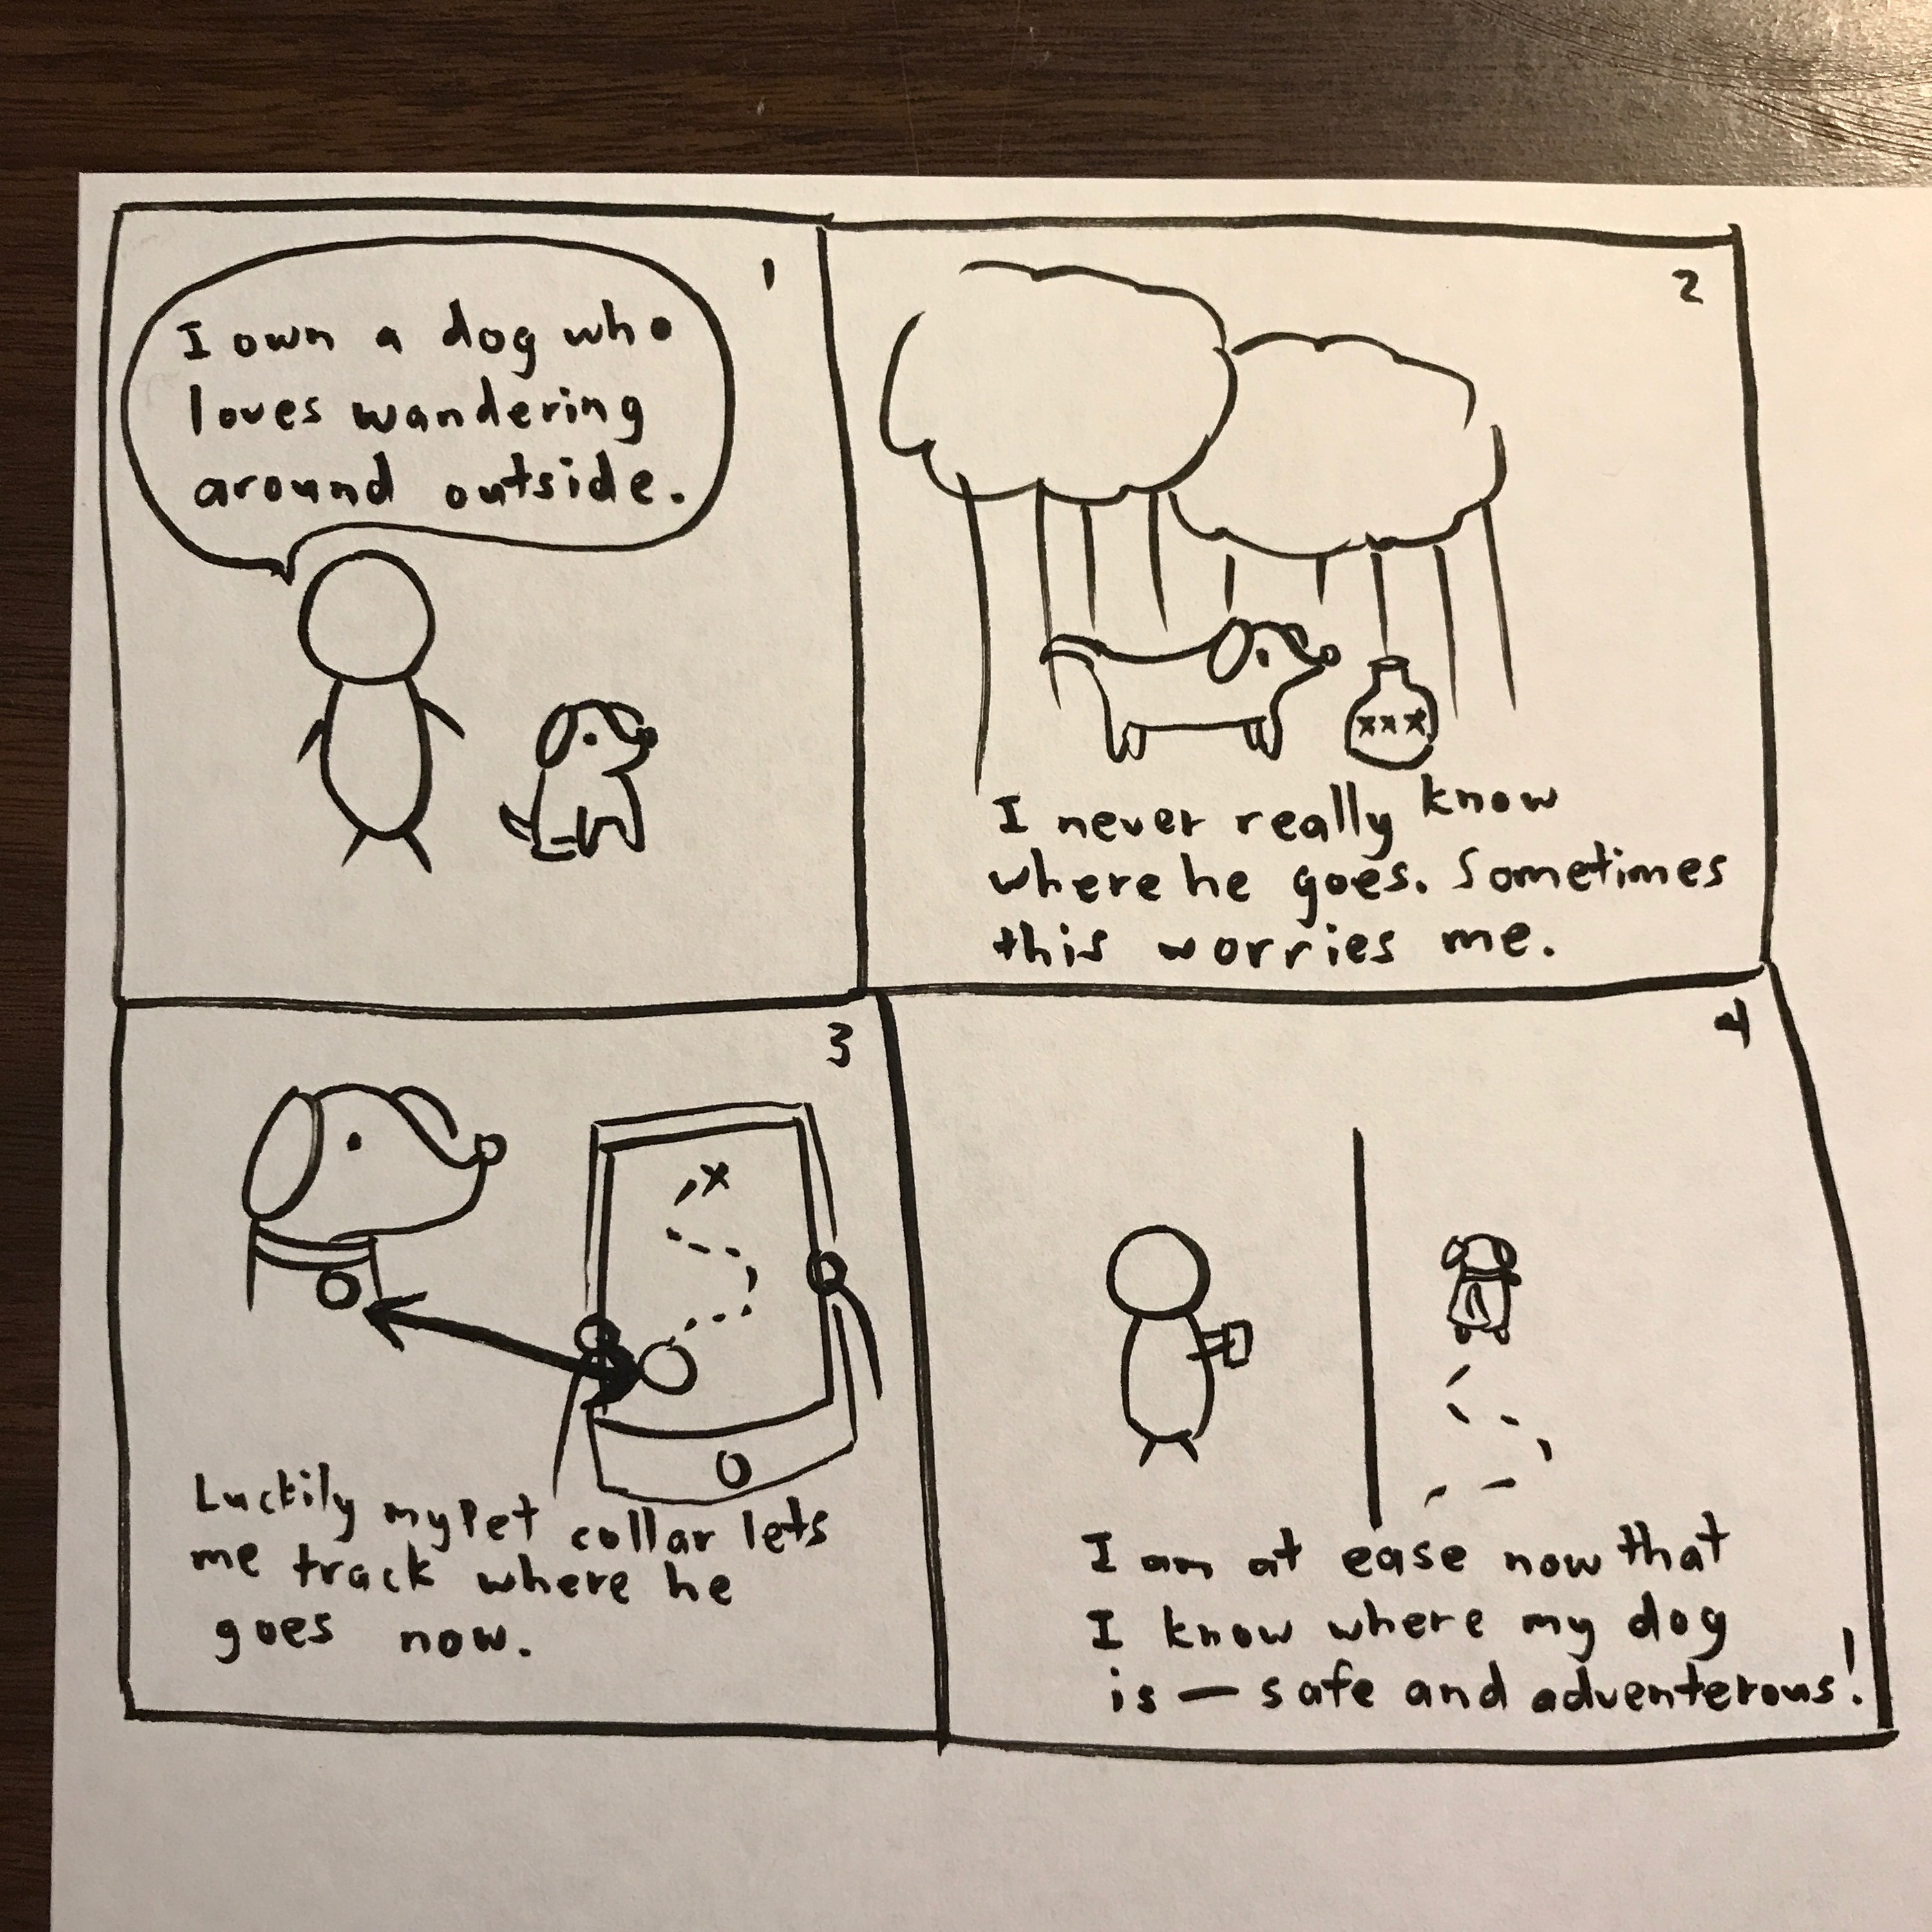 1
I own a dog who
loves wandering
around outside.
2
xxx
I never really know
where he goes. Sometimes
this worries me.
3
x
Luckily my Pet collar lets
me track where he
goes now.
4
I am at ease now that
I know where my dog
is — safe and adventerous!